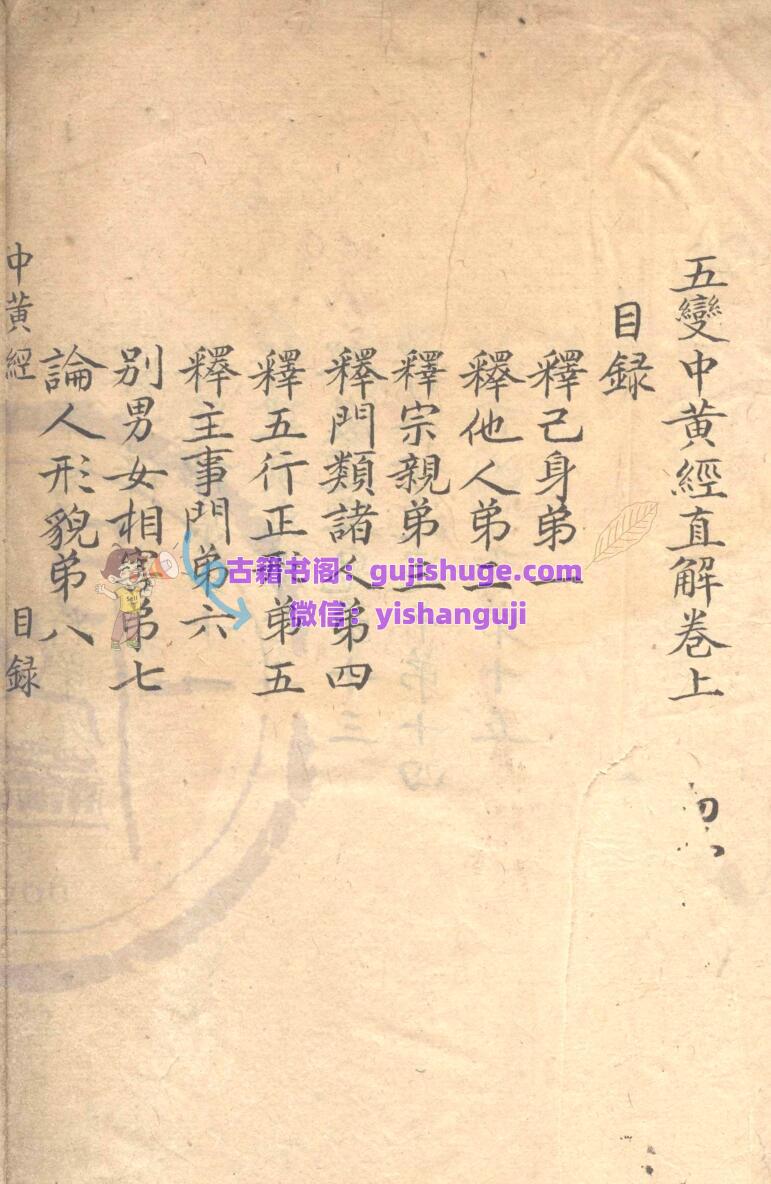 五變中黃經直解卷上
目録
釋己身弟一
釋他人弟二
釋宗親弟三
釋門類諸人弟四
釋五行正形弟五
釋主事門弟六
別男女相 弟七
論人形貌弟八
中黃經
目録
古籍书阁：gujishuge.com
微信：yishanguji